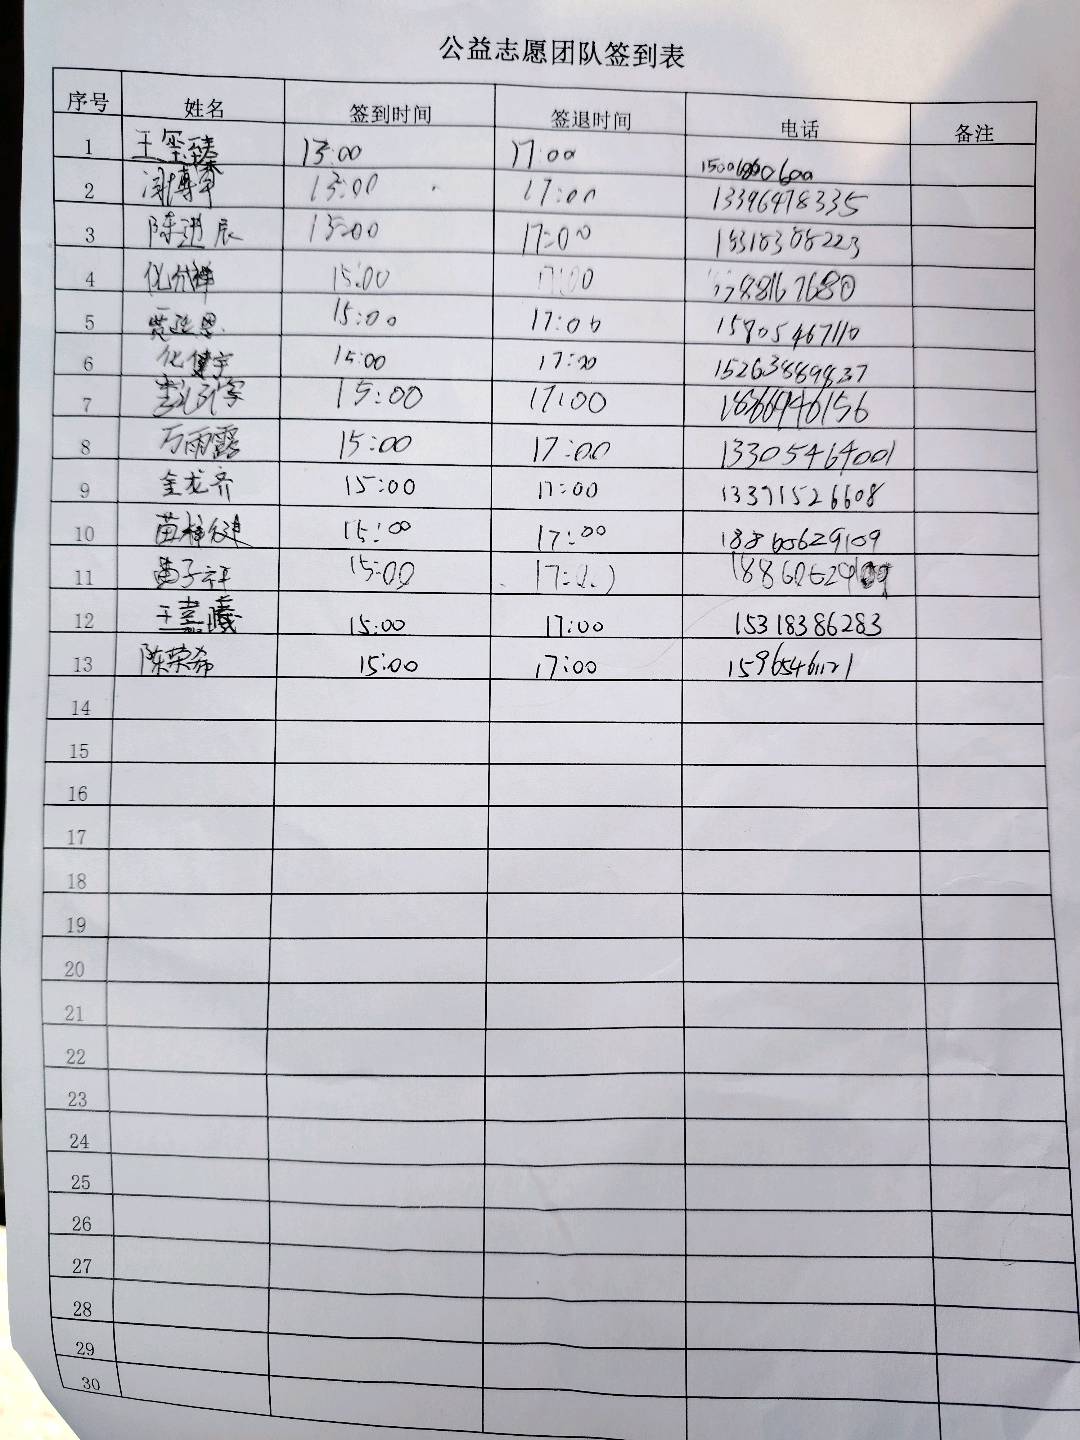 公益志愿团队签到表
序号 姓名 签到时间 签退时间 电话 备注
1 王 13:00 17:00
2 13:00 17:00 13396478335
3 陈 辰 13:00 17:00 15318388223
4 15:00 17:00 88167680
5 15:00 17:00 15905467110
6 化健宇 15:00 17:00 15263889837
7 15:00 17:00 18366946156
8 万雨露 15:00 17:00 13305464001
9 金龙齐 15:00 17:00 13371526608
10 苗梓健 15:00 17:00 18860629109
11 苗子祥 15:00 17:
12 王嘉曦 15:00 17:00 15318386283
13 陈荣希 15:00 17:00 15965461121
14
15
16
17
18
19
20
21
22
23
24
25
26
27
28
29
30